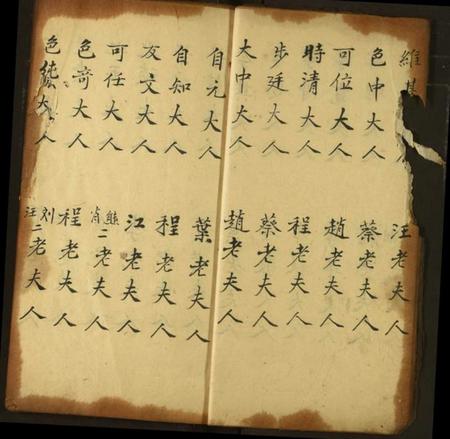 維
色中大人
可位大人
時清大人
步廷大人
大中大人
自元大人
自知大人
友文大人
可任大人
色奇大人
色純大人
汪老夫人
蔡老夫人
趙老夫人
程老夫人
蔡老夫人
趙老夫人
葉老夫人
程老夫人
江老夫人
熊肖二老夫人
程老夫人
刘汪二老夫人